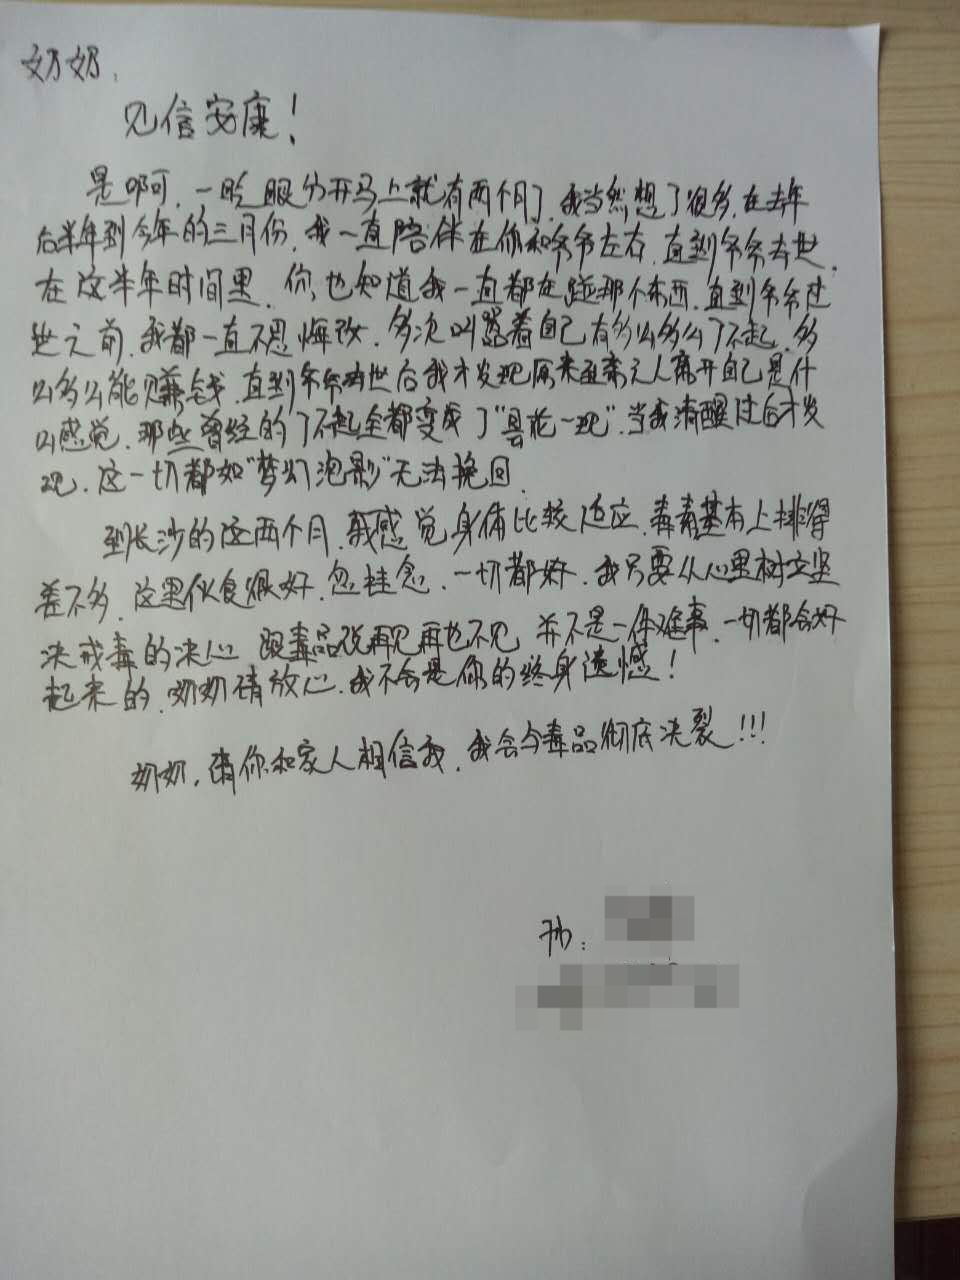 奶奶：
见信安康！
是啊可，一眨眼分开马上就有两个月了，我当然想了很多，在去年
后半年到今年的三月份，我一直陪伴在你和爷爷左右，直到爷爷去世，
在这半年时间里，你也知道我一直都在碰那个东西，直到爷爷过
世之前，我都一直不思悔改，多次叫嚣着自己有多么多么了不起，多
么多么能赚钱，直到爷爷去世后我才发现原来至亲之人离开自己是什
么感觉，那些曾经的了不起全都变成了“昙花一现”，当我清醒过后才发
现，这一切都如“梦幻泡影”无法挽回。
到长沙的这两个月，我感觉身体比较适应，毒素基本上排得
差不多，这里伙食很好，勿挂念，一切都好，我只要从心里树立坚
决戒毒的决心，跟毒品说再见再也不见，并不是一件难事，一切都会好
起来的，奶奶请放心，我不会是你的终身遗憾！
奶奶，请你和家人相信我，我会与毒品彻底决裂！！！